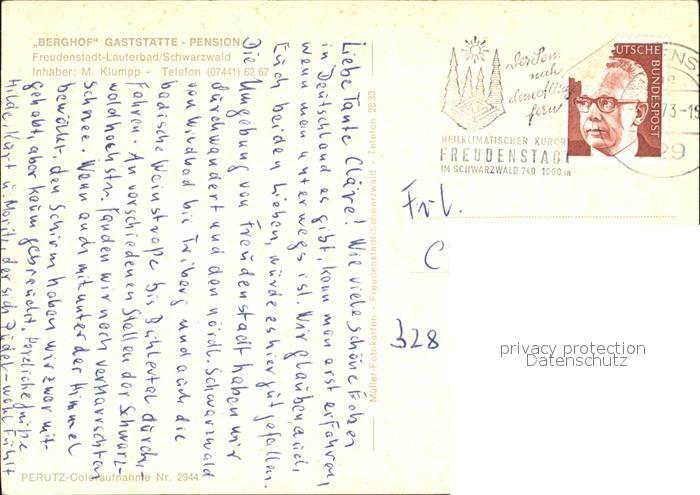 „BERGHOF" GASTSTÄTTE - PENSION
Freudenstadt-Lauterbad/Schwarzwald
Inhaber: M. Klumpp - Telefon (07441) 62 67
Liebe Tante Cläre! Wie viele schöne Ecken
in Deutschland es gibt, kann man erst erfahren,
wenn man unterwegs ist. Wir glauben, auch
Euch beiden Lieben, würde es hier gut gefallen.
Die Umgebung von Freudenstadt haben wir
durchwandert und den nördl. Schwarzwald
von Wildbad bis Triberg und auch die
badische Weinstraße bis Bühlertal durch-
fahren. An verschiedenen Stellen der Schwarz-
waldhochstr. fanden wir noch verharrschten
Schnee. Wenn auch mitunter der Himmel
bewölkt, den Schirm haben wir zwar mit-
gehabt, aber kaum gebraucht. Herzliche Grüße
Hilde, Kurt u. Moritz, der sich pudel-wohl fühlt
PERUTZ-Coloraufnahme Nr. 2944
Müller-Fotokarten - Freudenstadt/Schwarzwald - Telefon 2833
Der Sonne
nah
dem Alltag
fern
HEILKLIMATISCHER KURORT
FREUDENSTADT
IM SCHWARZWALD 740 - 1000 m
DEUTSCHE BUNDESPOST
73-19
29
Frl.
C
328
privacy protection
Datenschutz